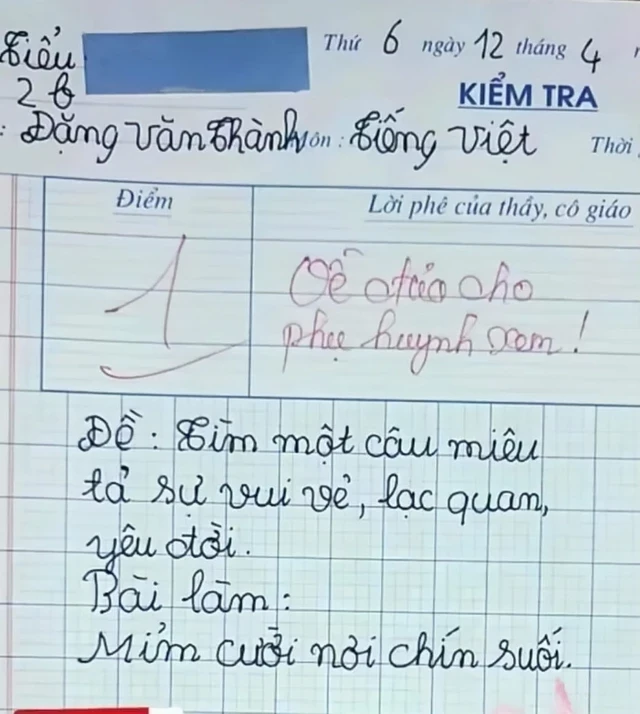 Tiểu
Thứ 6 ngày 12 tháng 4
2B
KIỂM TRA
: Đặng Văn Thành Môn : Tiếng Việt Thời
Điểm
Lời phê của thầy, cô giáo
1
Về đưa cho
phụ huynh xem!
Đề : Tìm một câu miêu
tả sự vui vẻ, lạc quan,
yêu đời.
Bài làm :
Mỉm cười nơi chín suối.